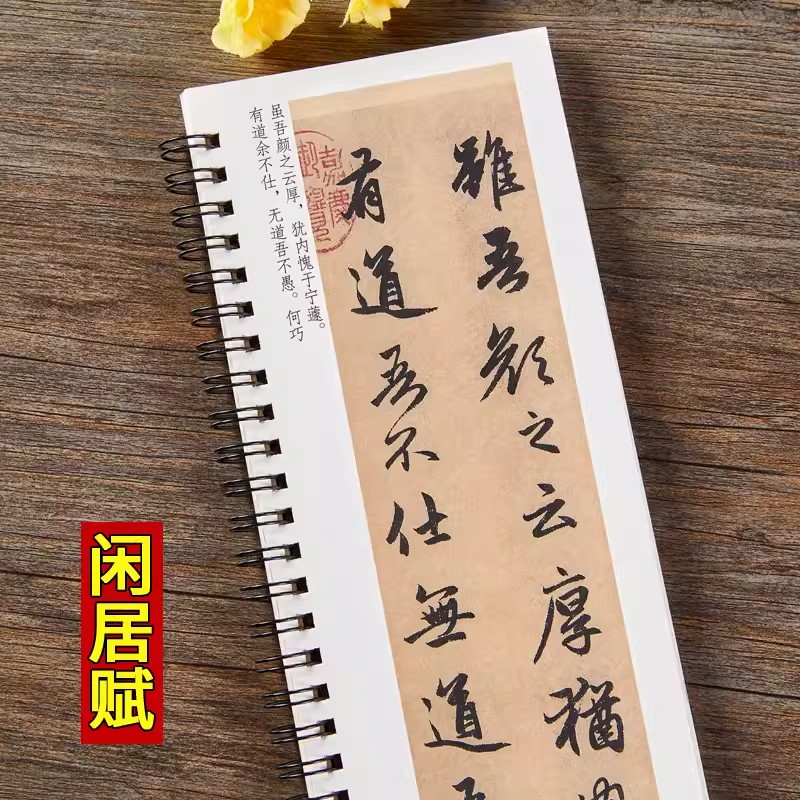 虽吾颜之云厚，犹内愧于宁蘧。
有道余不仕，无道吾不愚。何巧
雖吾顏之云厚猶内
有道吾不仕無道吾
闲居赋